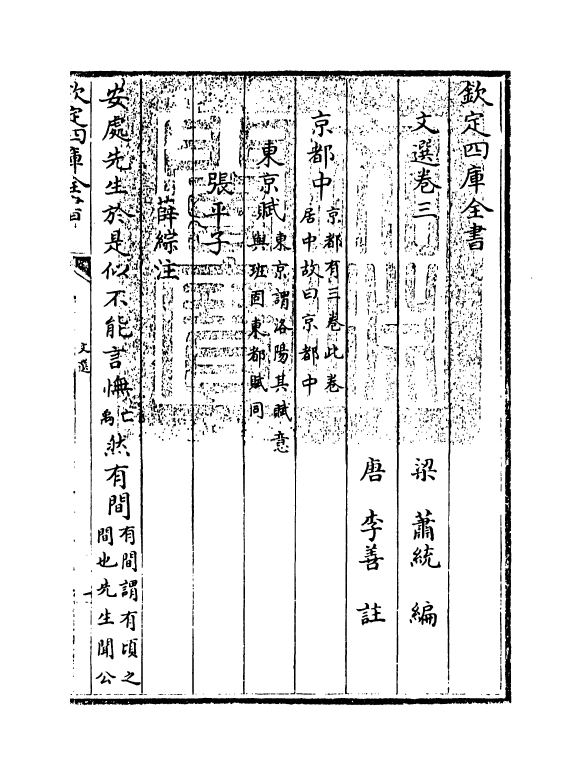 欽定四庫全書
文選卷三
梁 蕭統 編
唐 李善 註
京都中京都有三卷此卷居中故曰京都中
東京賦東京謂洛陽其賦意與班固東都賦同
張平子
薛綜注
安處先生於是似不能言憮亡禹然有間有間謂有頃之間也先生聞公
欽定四庫全書
文選